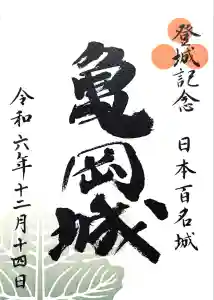 登城記念
日本百名城
亀岡城
令和六年十二月十四日